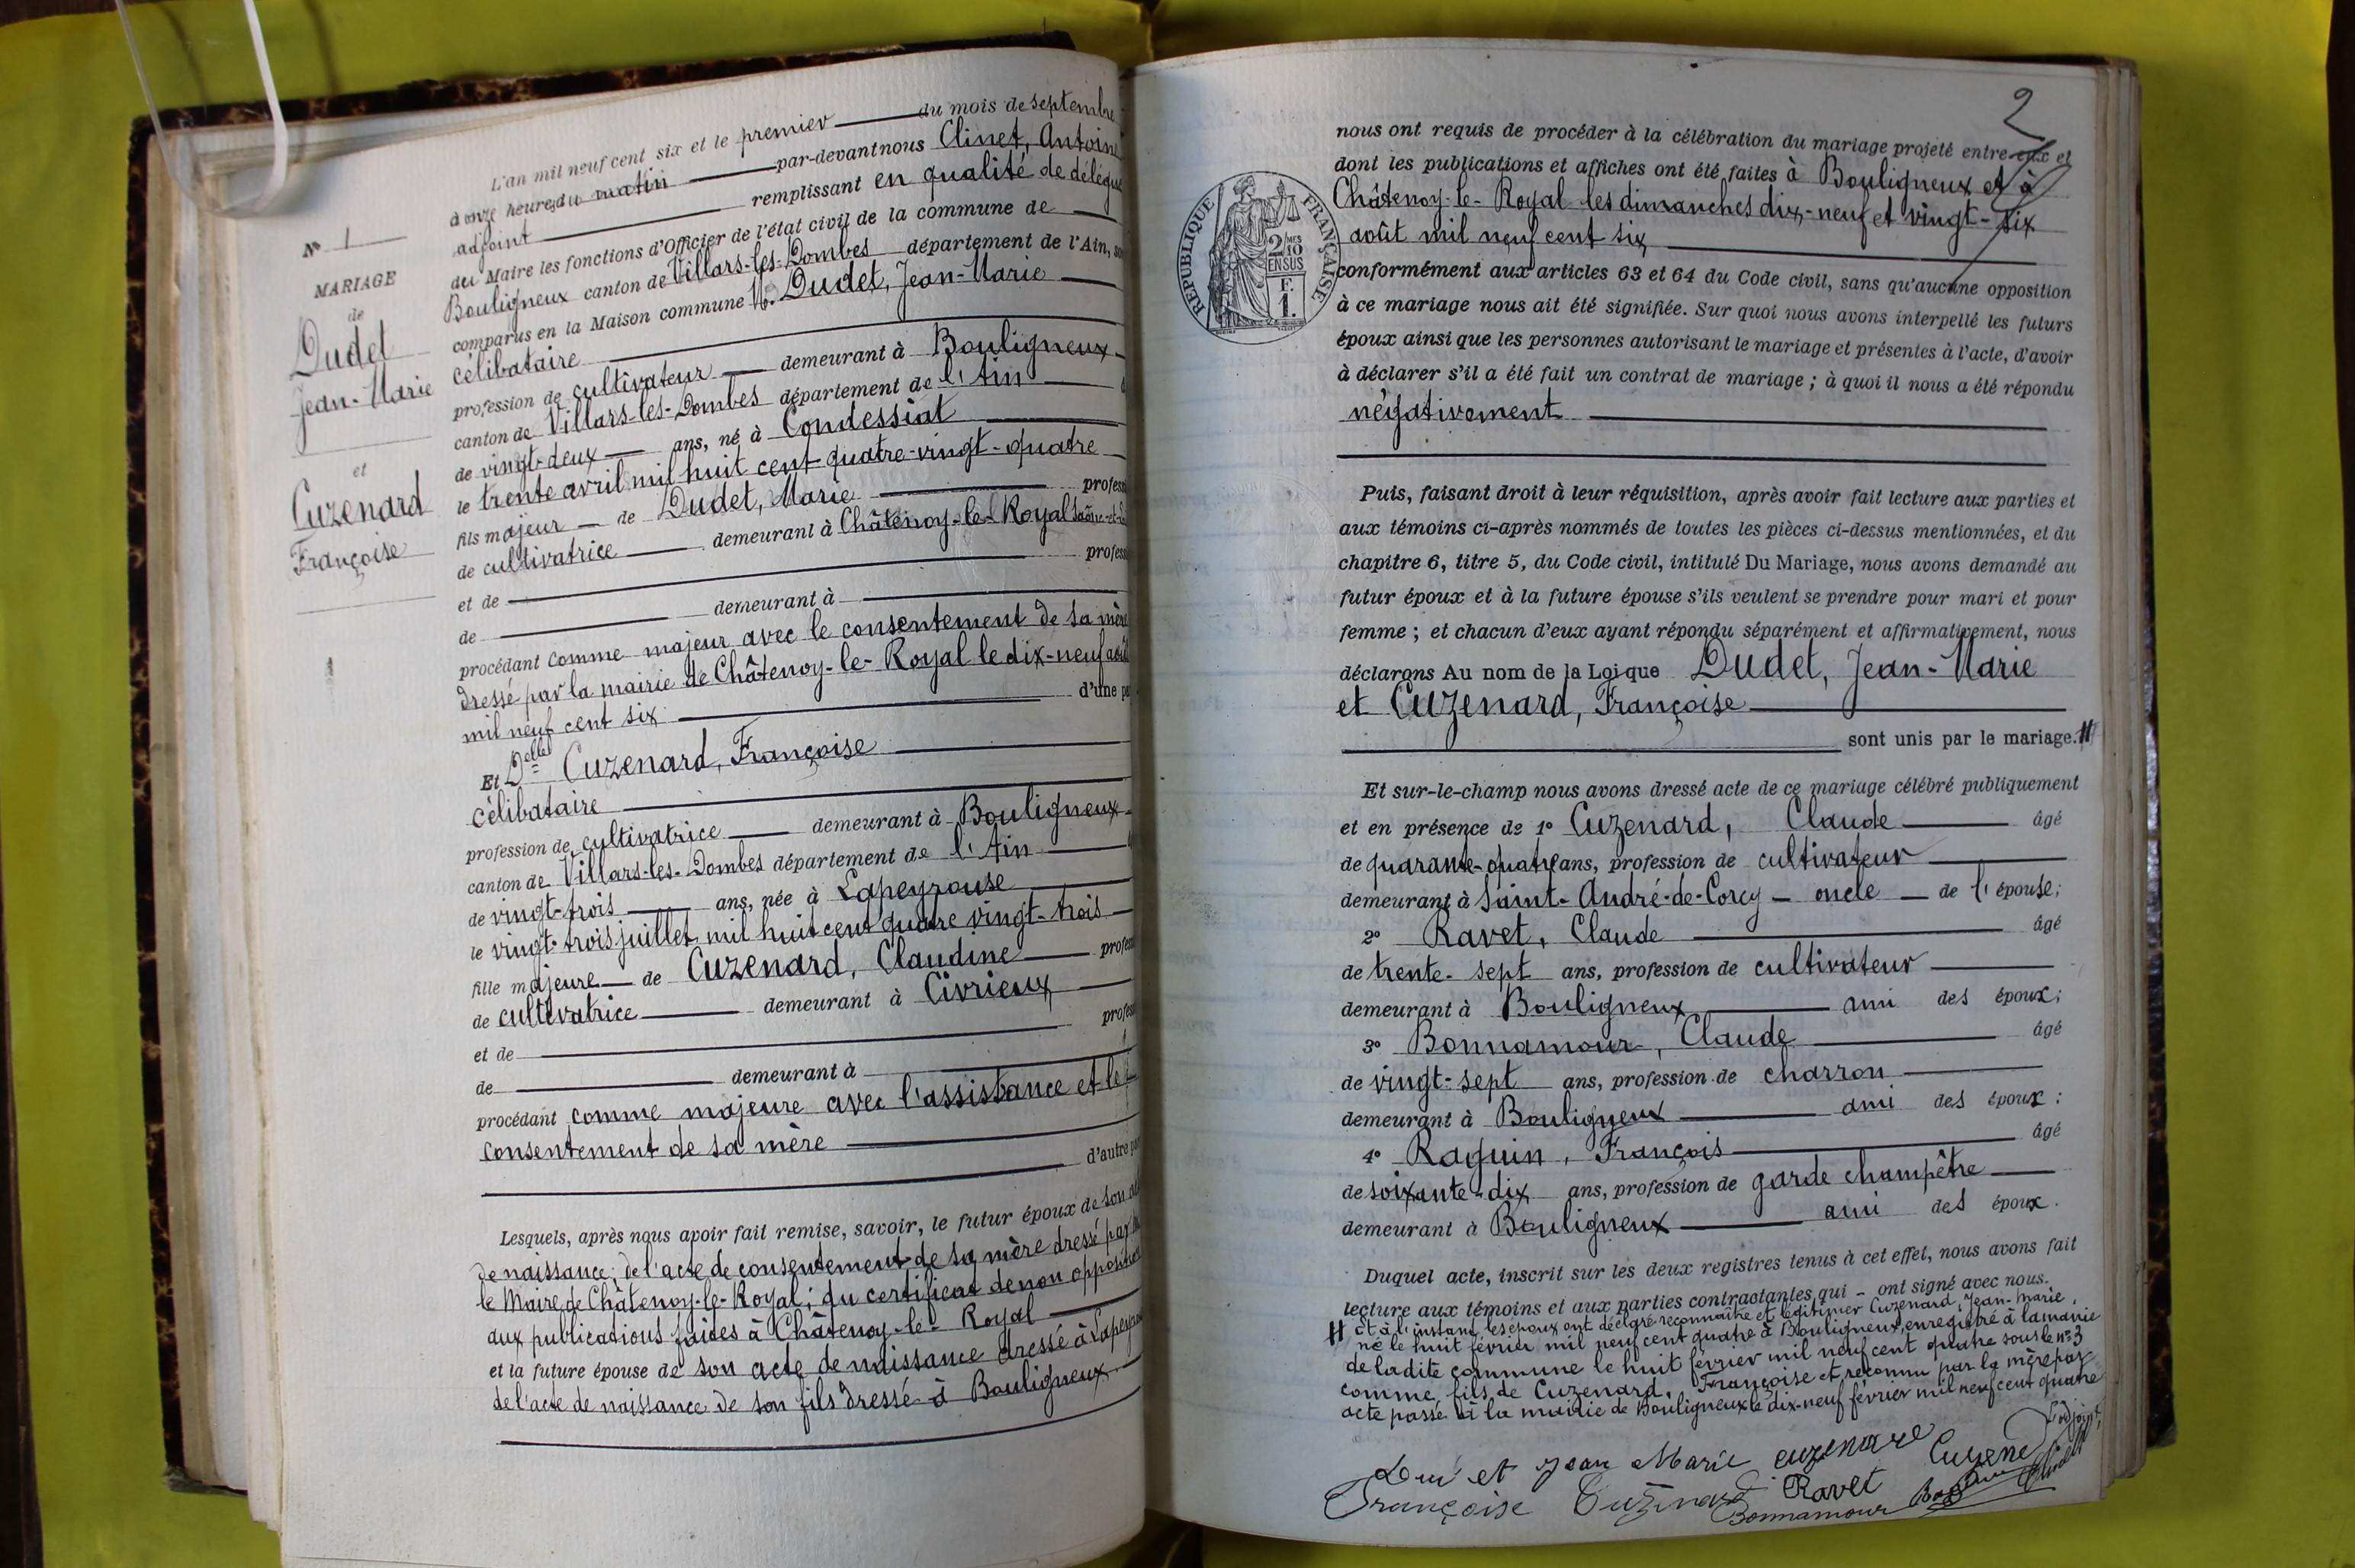 N° 1
MARIAGE
de
Dudet
Jean-Marie
et
Cuzenard
Françoise
L'an mil neuf cent six et le premier du mois de septembre
à onze heures du matin par-devant nous Clinet, Antoine
adjoint remplissant en qualité de délégué
du Maire les fonctions d'Officier de l'état civil de la commune de
Bouligneux canton de Villars-les-Dombes département de l'Ain, so
comparus en la Maison commune M. Dudet, Jean-Marie
célibataire
profession de cultivateur demeurant à Bouligneux
canton de Villars-les-Dombes département de l'Ain
de vingt-deux ans, né à Condessiat
le trente avril mil huit cent quatre-vingt-quatre
fils majeur de Dudet, Marie profess
de cultivatrice demeurant à Châtenoy-le-Royal Saône-et-L
et de profess
de demeurant à
procédant comme majeur avec le consentement de sa mère
dressé par la mairie de Châtenoy-le-Royal le dix-neuf août
mil neuf cent six d'une pa
Et Delle Cuzenard, Françoise
célibataire
profession de cultivatrice demeurant à Bouligneux
canton de Villars-les-Dombes département de l'Ain
de vingt-trois ans, née à Lapeyrouse
le vingt-trois juillet mil huit cent quatre vingt-trois
fille majeure de Cuzenard, Claudine profess
de cultivatrice demeurant à Civrieux
et de profess
de demeurant à
procédant comme majeure avec l'assistance et le
consentement de sa mère
d'autre pa
Lesquels, après nous avoir fait remise, savoir, le futur époux de son a
de naissance; de l'acte de consentement de sa mère dressé par
le Maire de Châtenoy-le-Royal; du certificat de non opposition
aux publications faites à Châtenoy-le-Royal
et la future épouse de son acte de naissance dressé à Lapeyrou
de l'acte de naissance de son fils dressé à Bouligneux
2
nous ont requis de procéder à la célébration du mariage projeté entre eux et
dont les publications et affiches ont été faites à Bouligneux et à
Châtenoy-le-Royal les dimanches dix-neuf et vingt-six
août mil neuf cent six
RÉPUBLIQUE FRANÇAISE
2/10MES
EN SUS
F.
1.
conformément aux articles 63 et 64 du Code civil, sans qu'aucune opposition
à ce mariage nous ait été signifiée. Sur quoi nous avons interpellé les futurs
époux ainsi que les personnes autorisant le mariage et présentes à l'acte, d'avoir
à déclarer s'il a été fait un contrat de mariage; à quoi il nous a été répondu
négativement
Puis, faisant droit à leur réquisition, après avoir fait lecture aux parties et
aux témoins ci-après nommés de toutes les pièces ci-dessus mentionnées, et du
chapitre 6, titre 5, du Code civil, intitulé Du Mariage, nous avons demandé au
futur époux et à la future épouse s'ils veulent se prendre pour mari et pour
femme; et chacun d'eux ayant répondu séparément et affirmativement, nous
déclarons Au nom de la Loi que Dudet, Jean-Marie
et Cuzenard, Françoise
sont unis par le mariage. #
Et sur-le-champ nous avons dressé acte de ce mariage célébré publiquement
et en présence de 1° Cuzenard, Claude âgé
de quarante-quatre ans, profession de cultivateur
demeurant à Saint-André-de-Corcy – oncle – de l'épouse;
2° Ravet, Claude âgé
de trente-sept ans, profession de cultivateur
demeurant à Bouligneux ami des époux;
3° Bonnamour, Claude âgé
de vingt-sept ans, profession de charron
demeurant à Bouligneux ami des époux;
4° Raquin, François âgé
de soixante-dix ans, profession de garde champêtre
demeurant à Bouligneux ami des époux.
Duquel acte, inscrit sur les deux registres tenus à cet effet, nous avons fait
lecture aux témoins et aux parties contractantes qui – ont signé avec nous.
# Et à l'instant, les époux ont déclaré reconnaître et légitimer Cuzenard, Jean-Marie,
né le huit février mil neuf cent quatre à Bouligneux, enregistré à la mairie
de ladite commune le huit février mil neuf cent quatre sous le n° 3
comme fils de Cuzenard, Françoise et reconnu par la mère par
acte passé à la mairie de Bouligneux le dix-neuf février mil neuf cent quatre
L'adjoint,
Dudet Jean Marie cuzenard
Françoise Cuzenard Ravet
Bonnamour Raquin Clinet